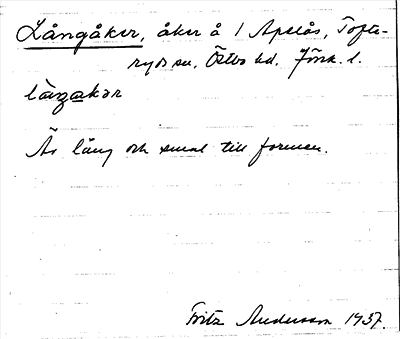 Långåker, åker å 1 Apelås, Tofte-
ryds sn, Östbo hd. Jönk. l.
làŋgakər
Är lång och smal till formen.
Fritz Andersson 1937.